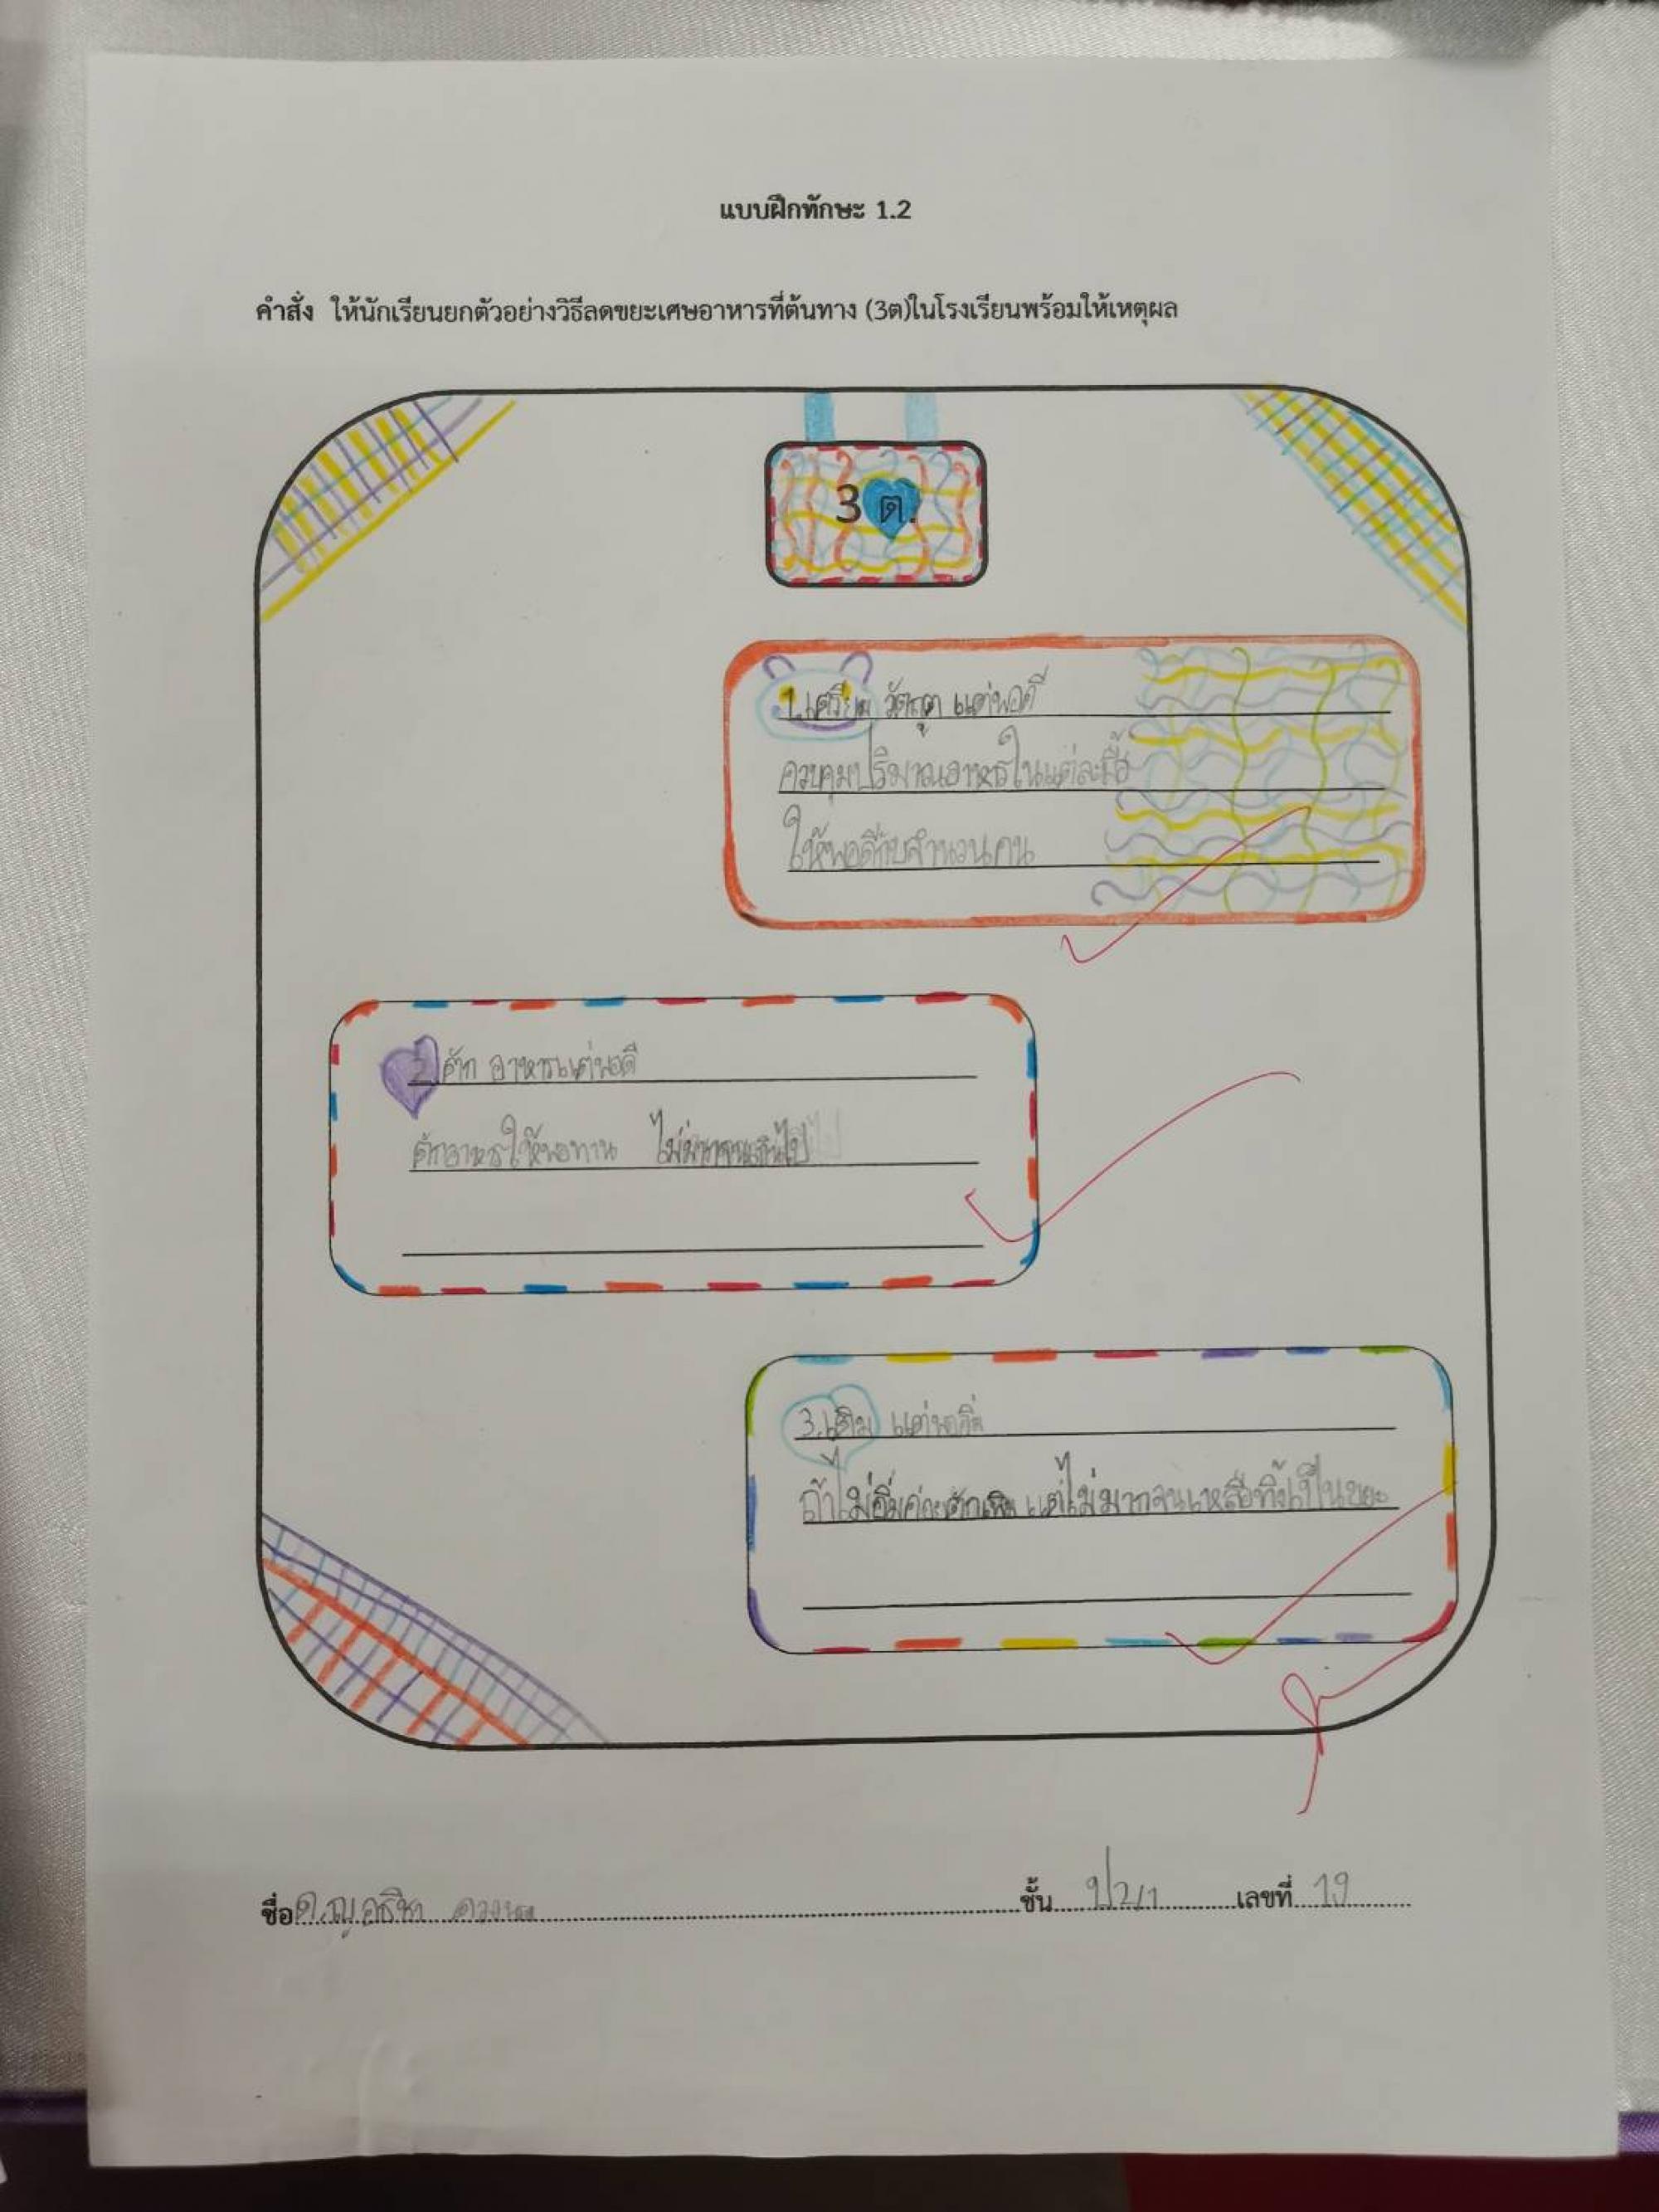 แบบฝึกทักษะ 1.2
คำสั่ง ให้นักเรียนยกตัวอย่างวิธีลดขยะเศษอาหารที่ต้นทาง (3ต)ในโรงเรียนพร้อมให้เหตุผล
3 ต.
1. เตรียม วัตถุดิบ แต่พอดี
ควบคุมปริมาณอาหารในแต่ละมื้อ
ให้พอดีกับจำนวนคน
2. ตัก อาหารแต่พอดี
ตักอาหารให้พอทาน ไม่มากจนเกินไป
3. เติม แต่พออิ่ม
ถ้าไม่อิ่มค่อยตักเพิ่ม แต่ไม่มากจนเหลือทิ้งเป็นขยะ
ชื่อ ด.ญ. ชั้น ป.2/1 เลขที่ 19